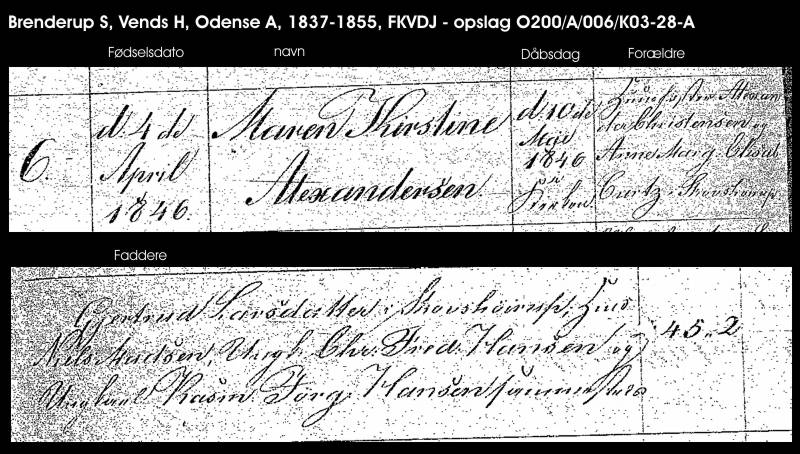 Brenderup S, Vends H, Odense A, 1837-1855, FKVDJ - opslag O200/A/006/K03-28-A
Fødselsdato navn Dåbsdag Forældre
6.
d. 4 de
April
1846.
Maren Kirstine
Alexandersen
d. 10 de
Mai
1846
Kirken.
Alexan
der Christensen og
Anne Marg. 
Curtz i Skovshøirup
Faddere
Gjertrud Larsdatter i Skovshøirup, Huus
Niels Madsen, Ungk. Chr. Fred. Hansen og
Ungkarl Rasm. Jørg. Hansen sammesteds
45. 2